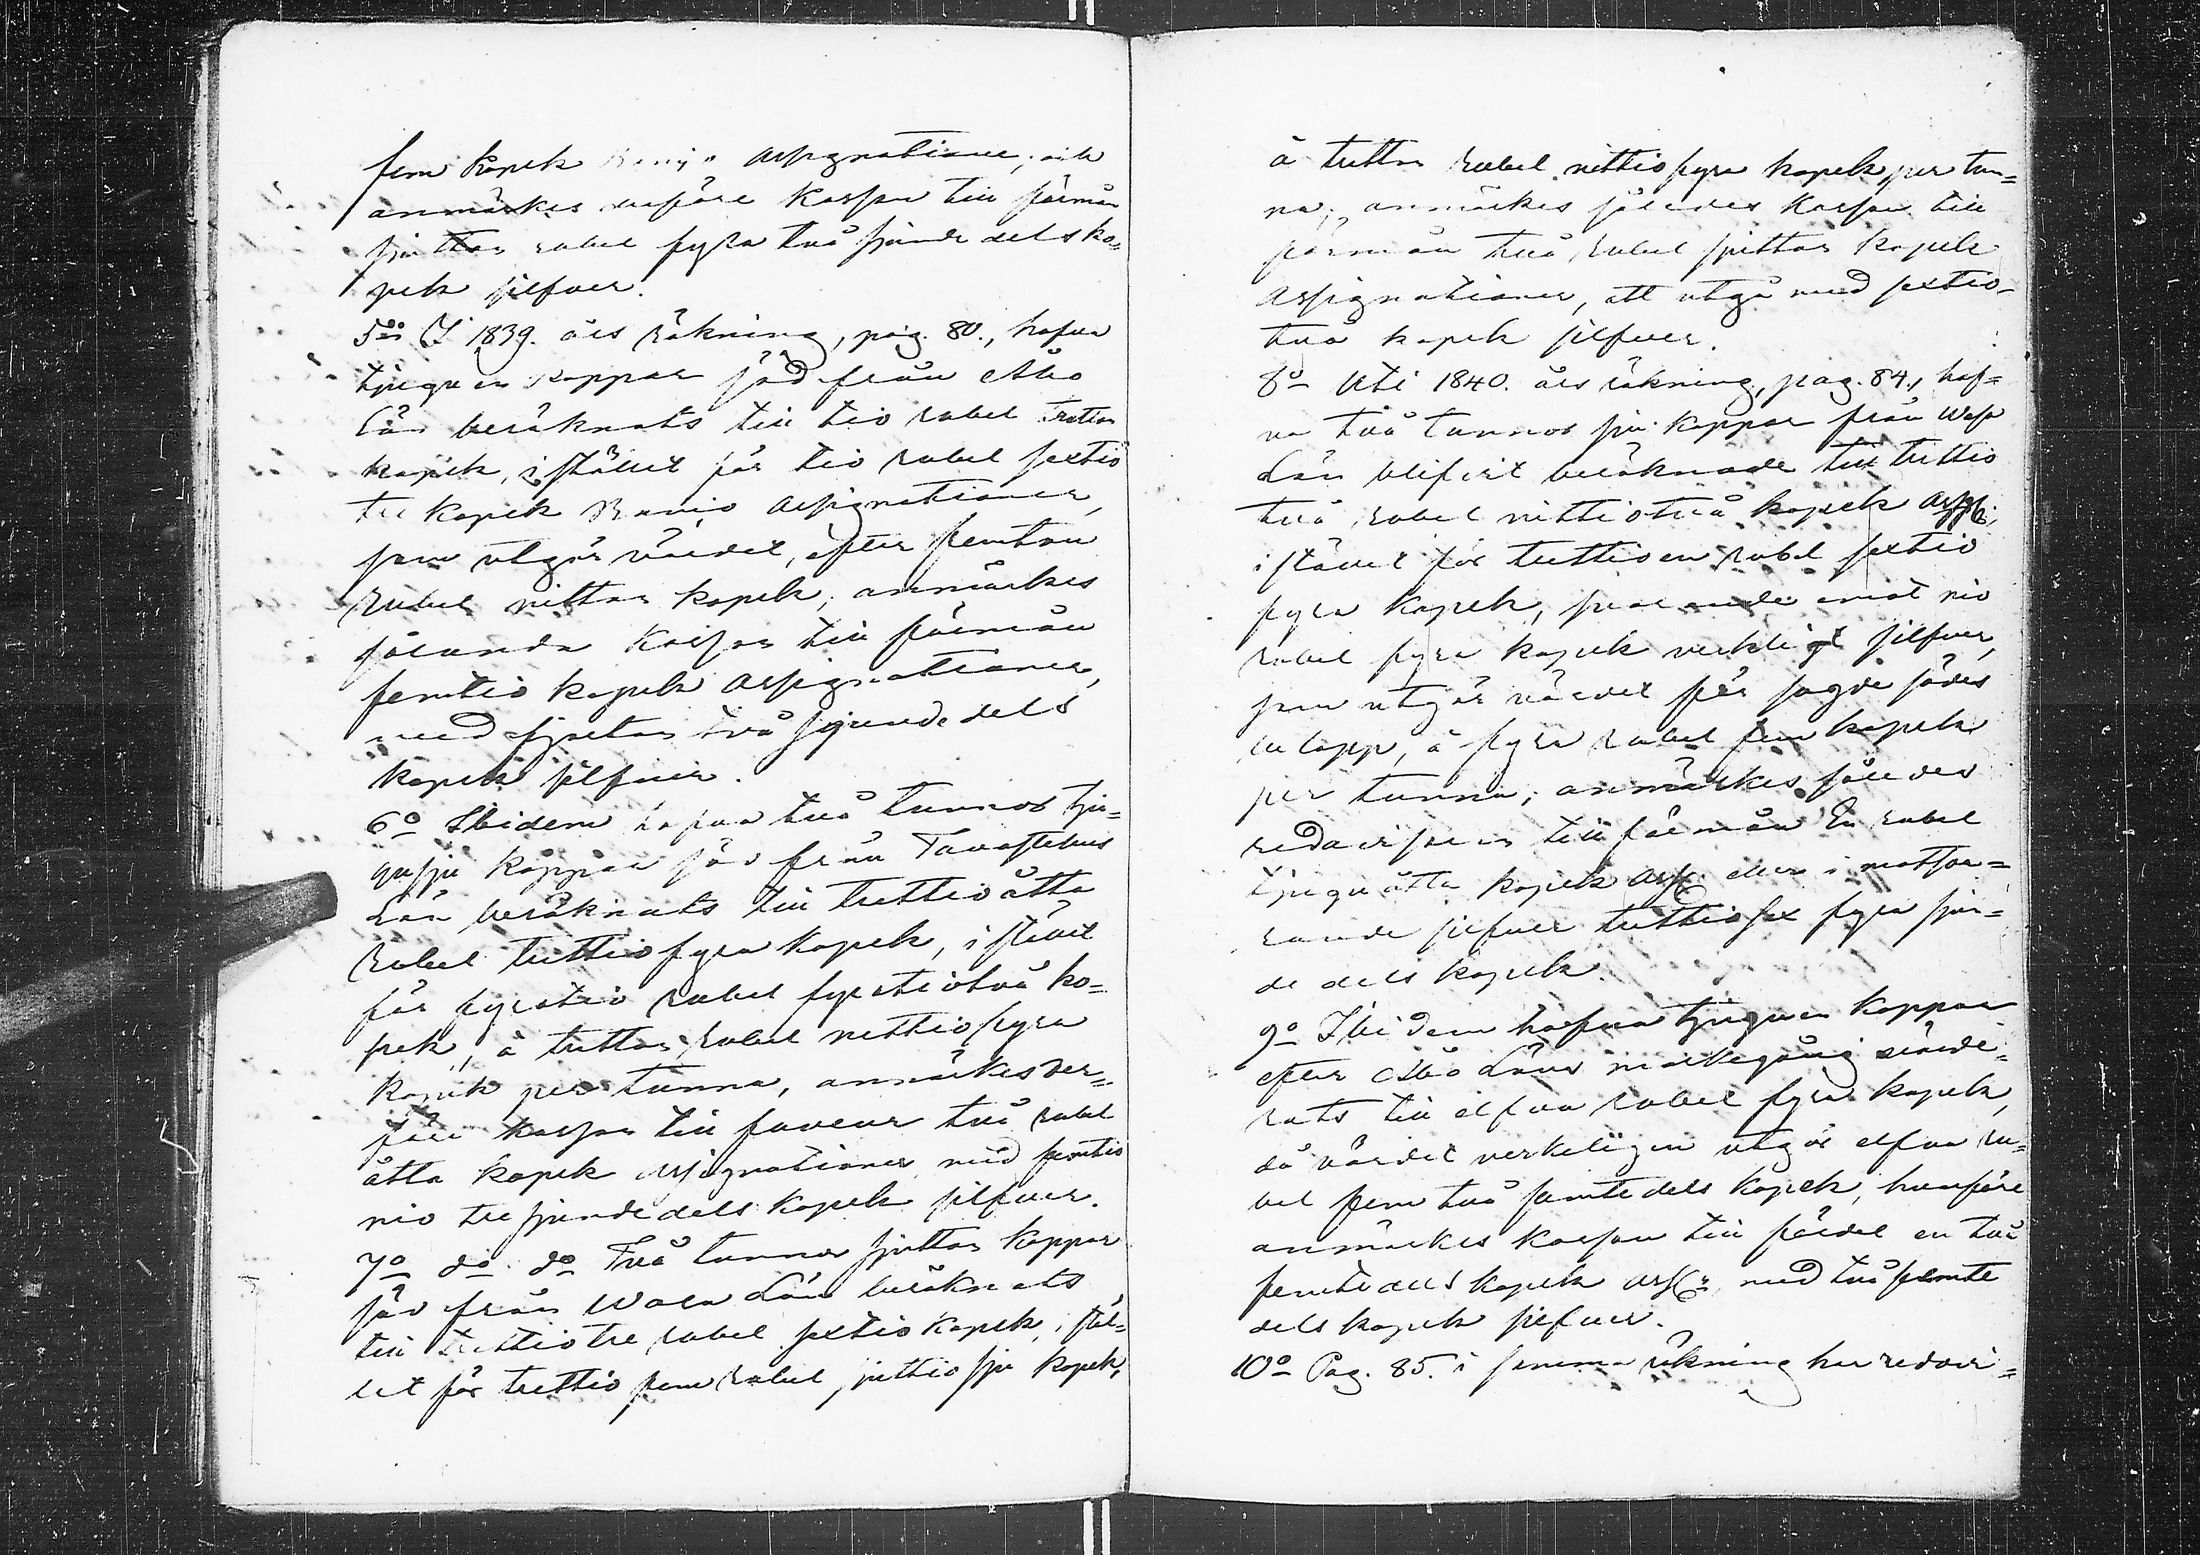 fem kopek Banco Assignationer, och
anmärkes derföre Kassan till förmån
sjutton rubel fyra två sjundedels ko=
pek silfver.
5:o I 1839. års räkning, pag. 80., hafva
tjugu en kappar säd från Åbo
Län beräknats till tio rubel tretton
kopek, i stället för tio rubel sextio
tre kopek Banco Assignationer,
som utgör värdet, efter femton
rubel nitton kopek; anmärkes
sålunda Kassan till förmån
femtio kopek Assignationer,
med fjorton två sjundedels
kopek silfver.
6:o Ibidem hafva två tunnor tju=
gusju kappar säd från Tavastehus
Län beräknats till trettioåtta
rubel trettiofyra kopek, i stället
för fyratio rubel fyratiotvå ko=
pek, à tretton rubel nittiofyra
kopek per tunna, anmärkes der=
före Kassan till faveur två rubel
åtta kopek Assignationer med femtio
nio tre sjundedels kopek silfver.
7:o d:o d:o Två tunnor sjutton kappar
säd från Wasa Län beräknats
till trettiotre rubel sextio kopek, i stäl=
let för trettiofem rubel sjuttiosju kopek,
à tretton rubel nittiofyra kopek per tun=
na; anmärkes således Kassan till
förmån två rubel sjutton kopek
Assignationer, att utgå med sextio-
två kopek silfver.
8:o Uti 1840. års räkning, pag. 84., haf=
va två tunnor sju kappar från Wasa
Län blifvit beräknade till trettio
två rubel nittiotvå kopek Assg:
i stället för trettioen rubel sextio
fyra kopek, svarande emot nio
rubel fyra kopek verkligt silfver,
som utgör värdet för sagde säds
belopp, à fyra rubel fem kopek
per tunna; anmärkes således
redovisaren till förmån En rubel
tjuguåtta kopek Assg: eller i motsva=
rande silfver trettiosex fyra sjun=
de dels kopek.
9:o Ibidem hafva tjuguen kappar
efter Åbo Läns markegång värde=
rats till elfva rubel fyra kopek,
då värdet verkeligen utgör elfva ru=
bel fem två femtedels kopek, hvarföre
anmärkes Kassan till fördel en två
femtedels kopek Assg:r med två femte
dels kopek silfver.
10:o Pag. 85. i samma räkning har redovi=